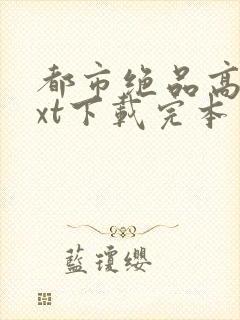 都市绝品高
xt下載完本
藍瓊纓